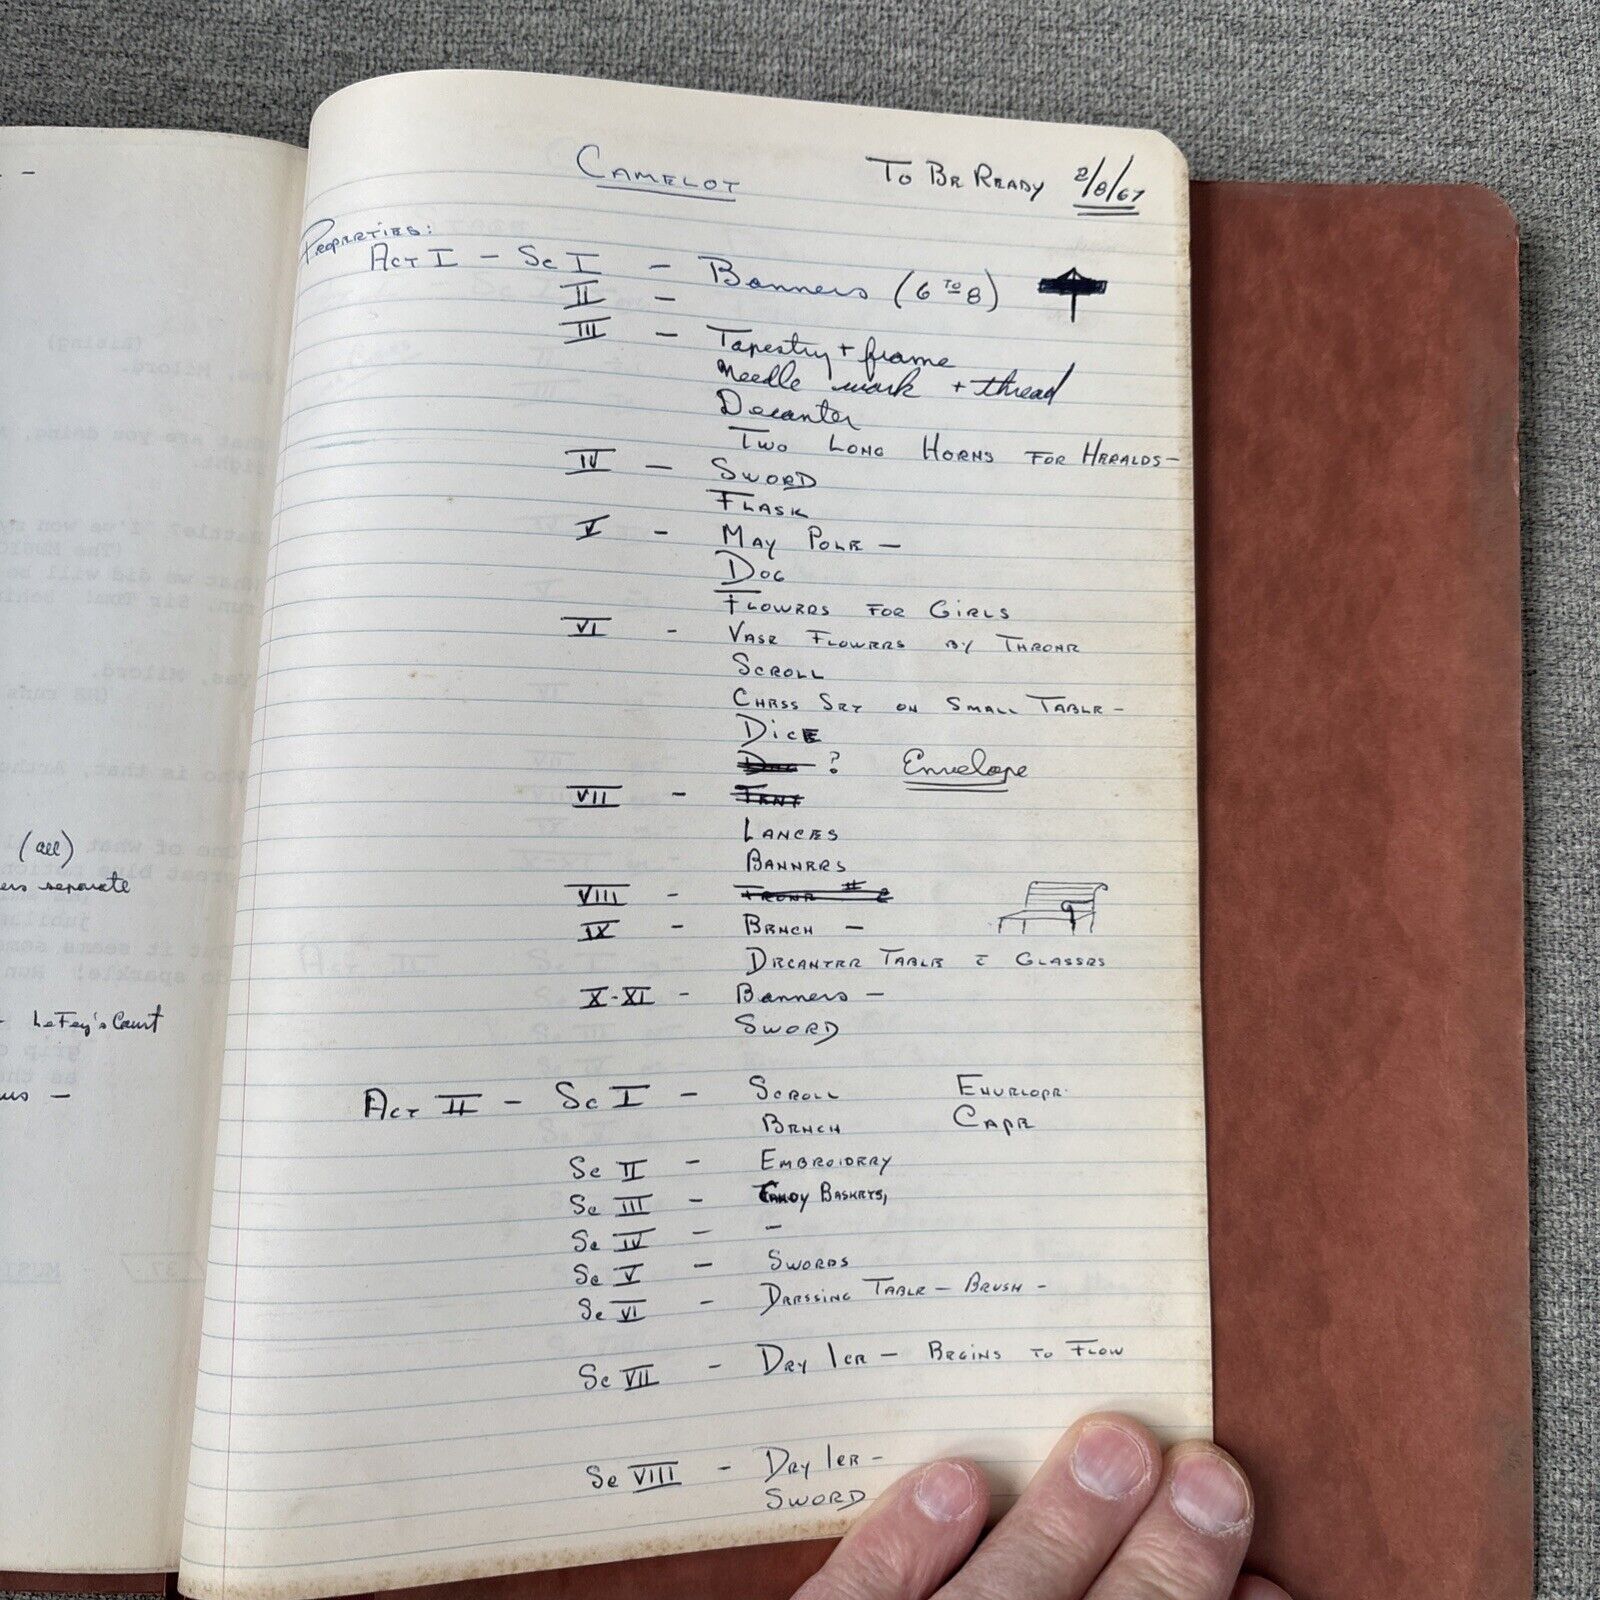 CAMELOT TO BE READY 2/8/67
PROPERTIES:
ACT I - Sc I - Banners (6 TO 8)
II -
III - Tapestry + frame
needle work + thread
Decanter
TWO LONG HORNS FOR HERALDS -
IV - SWORD
FLASK
V - MAY POLE -
DOG
FLOWERS FOR GIRLS
VI - VASE FLOWERS BY THRONE
SCROLL
CHESS SET ON SMALL TABLE -
DICE
DOG ? Envelope
VII - TENT
LANCES
BANNERS
VIII - THRONE # 2
IX - BENCH -
DECANTER TABLE c GLASSES
X-XI - Banners -
SWORD
ACT II - Sc I - SCROLL ENVELOPE
BENCH CAPE
Sc II - EMBROIDERY
Sc III - CANDY BASKETS,
Sc IV - -
Sc V - SWORDS
Sc VI - DRESSING TABLE - BRUSH -
Sc VII - DRY ICE - BEGINS TO FLOW
Sc VIII - DRY ICE -
SWORD
(all)
separate
- LeFey's Court